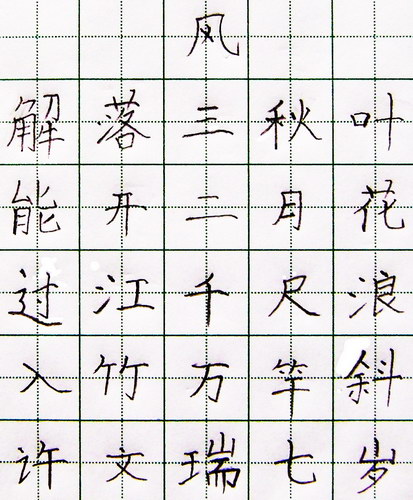 风
解落三秋叶
能开二月花
过江千尺浪
入竹万竿斜
许文瑞七岁